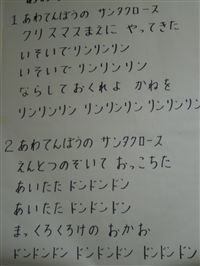 1 あわてんぼうの サンタクロース
クリスマスまえに やってきた
いそいでリンリンリン
いそいで リンリンリン
ならしておくれよ かねを
リンリンリン リンリンリン リンリンリン
2 あわてんぼうの サンタクロース
えんとつのぞいて おっこちた
あいたた ドンドンドン
あいたた ドンドンドン
まっくろくろけの おかお
ドンドンドン ドンドンドン ドンドンドン